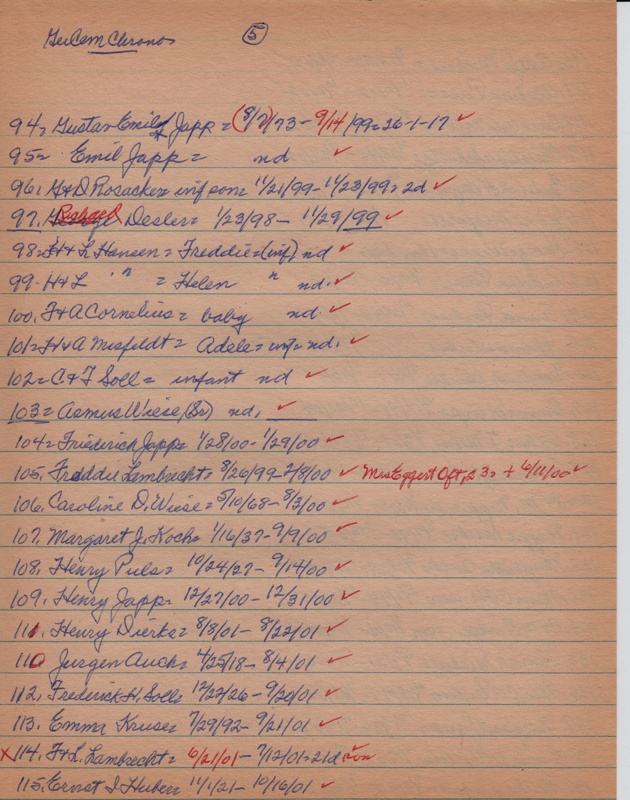 GerCem Chronos ⑤
94= Gustav Emil Japp = (8/7)/73 - 9/14/99=26-1-17 ✓
95= Emil Japp = nd ✓
96. H+D Rosacker= inf son= 11/21/99-11/23/99=2d ✓
97. Desler= 1/23/98- 11/29/99 ✓
98= H+L Hansen= Freddie=(inf) nd ✓
99. H+L " = Helen " nd. ✓
100. F+A Cornelius= baby nd. ✓
101= H+A Misfeldt= Adele= inf= nd. ✓
102= C+F Soll= infant nd ✓
103= Asmus Wiese, (Sr) nd, ✓
104= Friederick Japp= 1/28/00-1/29/00 ✓
105. Freddie Lambrecht= 8/26/99-2/8/00 ✓ Mrs Eggert Oft, 3= + 6/11/00 ✓
106. Caroline D. Wiese= 5/10/68-8/3/00 ✓
107. Margaret J. Koch= 1/16/37-9/9/00 ✓
108. Henry Puls= 10/24/27-9/14/00 ✓
109. Henry Japp= 12/27/00-12/31/00 ✓
111. Henry Dierks= 8/8/01-8/22/01 ✓
110 Jurgen Auch= 4/25/18-8/4/01 ✓
112. Frederick H. Soll= 12/22/26-9/20/01 ✓
113. Emma Kruse= 7/29/92-9/21/01 ✓
X114. F+L. Lambrecht= 6/21/01-7/12/01=21d ✓ son
115. Ernst I Huber= 11/1/21-10/16/01 ✓